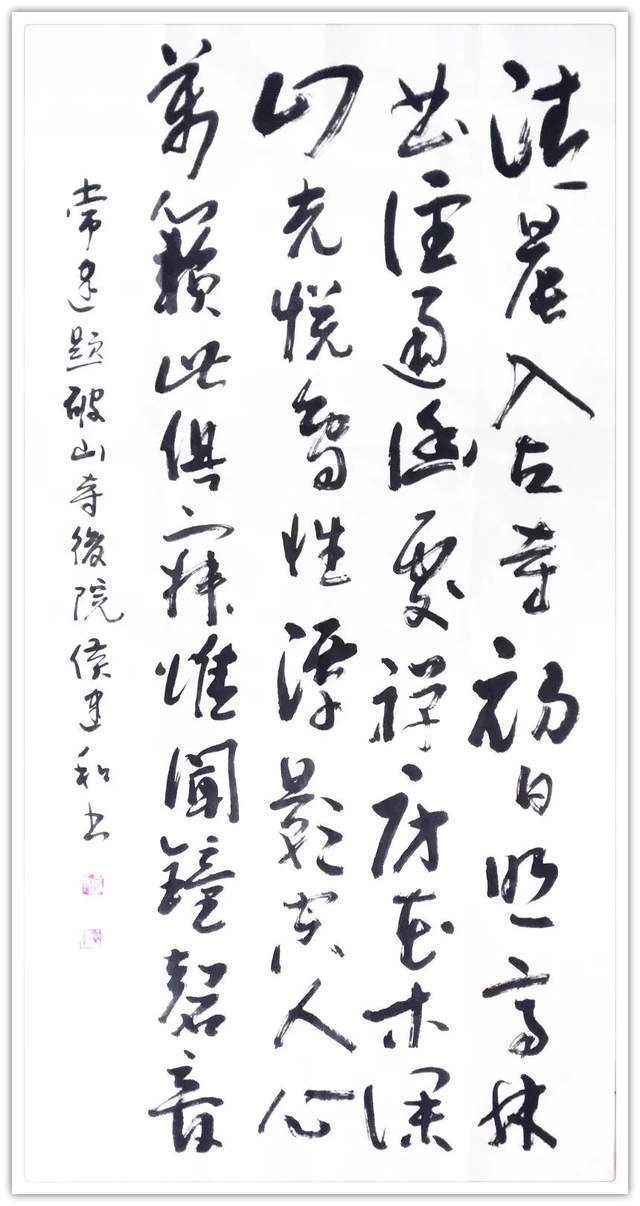 清晨入古寺初日照高林
曲徑通幽處禪房花木深
山光悅鳥性潭影空人心
萬籟此俱寂惟聞鐘磬音
常建題破山寺後院侯建和書